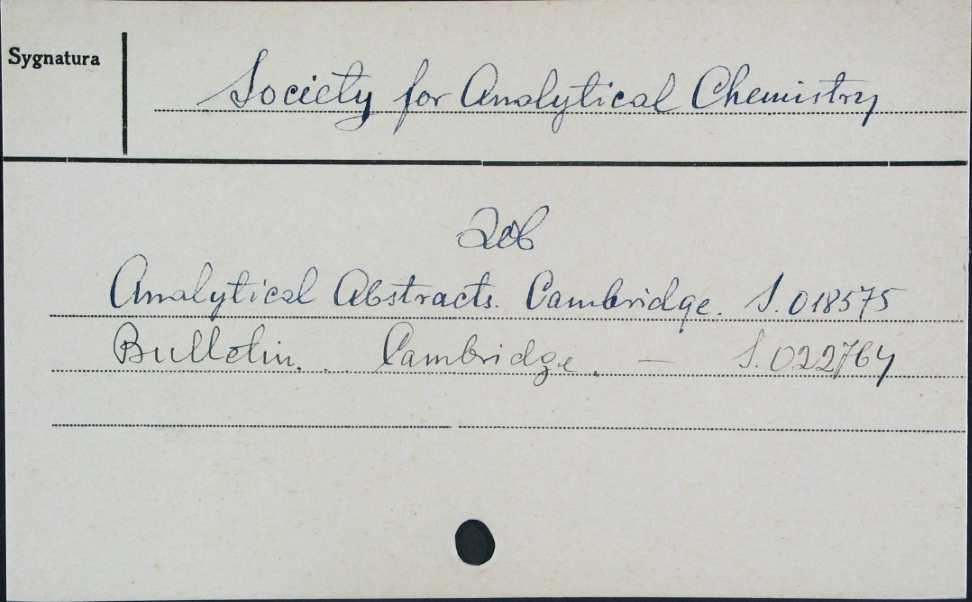 Sygnatura
Society for Analytical Chemistry
Zob
Analytical Abstracts. Cambridge. S. 018575
Bulletin. . Cambridge. — S. 022764